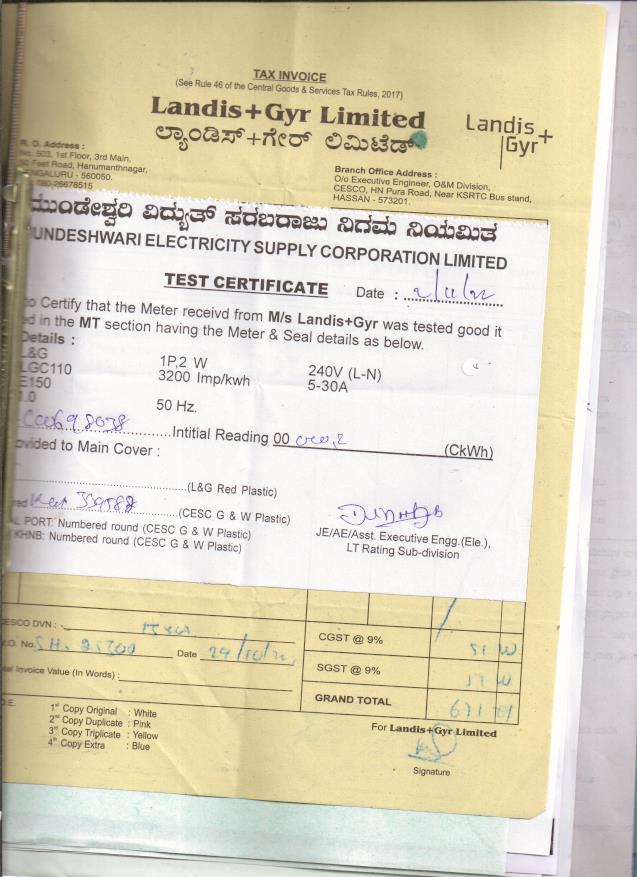 TAX INVOICE
(See Rule 46 of the Central Goods & Services Tax Rules, 2017)
Landis+Gyr Limited
ಲ್ಯಾಂಡಿಸ್+ಗೇರ್ ಲಿಮಿಟೆಡ್
Landis+
Gyr
R. O. Address :
No. 503, 1st Floor, 3rd Main,
Feet Road, Hanumanthnagar,
BENGALURU - 560050.
080-26678515
Branch Office Address :
O/o Executive Engineer, O&M Division,
CESCO, HN Pura Road, Near KSRTC Bus stand,
HASSAN - 573201.
ಮುಂಡೇಶ್ವರಿ ವಿದ್ಯುತ್ ಸರಬರಾಜು ನಿಗಮ ನಿಯಮಿತ
UNDESHWARI ELECTRICITY SUPPLY CORPORATION LIMITED
TEST CERTIFICATE
Date : 2/11/22
to Certify that the Meter receivd from M/s Landis+Gyr was tested good it
ed in the MT section having the Meter & Seal details as below.
Details :
L&G 1P,2 W 240V (L-N)
LGC110 3200 Imp/kwh 5-30A
E150
1.0 50 Hz.
Intitial Reading 00 (CkWh)
ovided to Main Cover :
(L&G Red Plastic)
red (CESC G & W Plastic)
L PORT: Numbered round (CESC G & W Plastic)
KHNB: Numbered round (CESC G & W Plastic)
JE/AE/Asst. Executive Engg.(Ele.),
LT Rating Sub-division
CESCO DVN :
CGST @ 9%
.O. No. Date 29/10/22
SGST @ 9%
tal Invoice Value (In Words) :
GRAND TOTAL
O.E.
1st Copy Original : White
2nd Copy Duplicate : Pink
3rd Copy Triplicate : Yellow
4th Copy Extra : Blue
For Landis+Gyr Limited
Signature